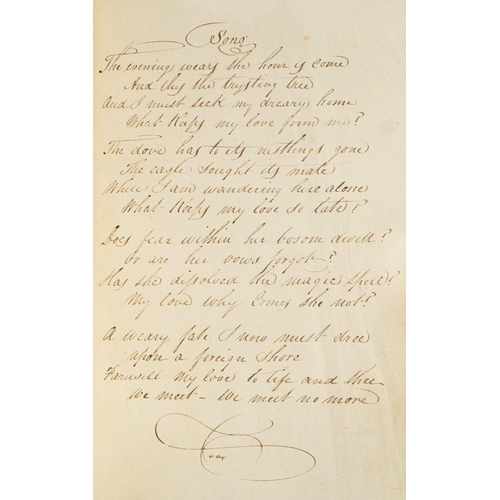 Song
The evening wears the hour is come
And this the trysting tree
And I must seek my dreary home
What Keeps my love from me?
The dove has to its nestlings gone
The eagle sought its mate
While I am wandering here alone
What Keeps my love so late?
Does fear within her bosom dwell?
or are her vows forgot?
Has she dissolved the magic spell?
My love why comes she not?
A weary fate I now must dree
upon a foreign shore
Farewell my love to life and thee
we meet - we meet no more